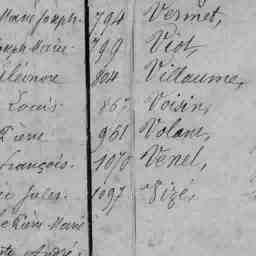 Marie Joseph. 794 Vermet,
Joseph Marie. 799 Viot,
Eléinore 804 Villaume,
Louis 867 Voisin,
Pierre 961 Volant,
François. 1070 Venel,
Jules. 1097 Vizé,
Pierre Marie
André,